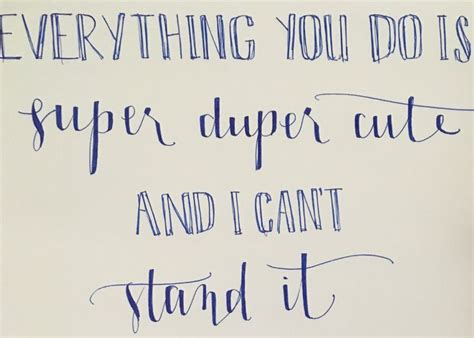 EVERYTHING YOU DO IS
super duper cute
AND I CAN'T
stand it